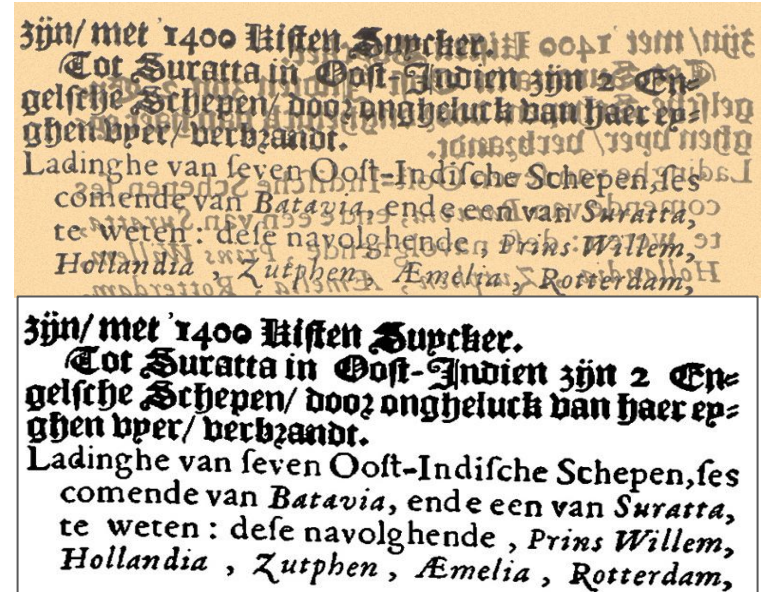 zijn/ met 1400 Kisten Suycker.
Tot Suratta in Oost-Indien zijn 2 En⸗
gelsche Schepen/ door ongheluck van haer ey⸗
ghen vyer/ verbrandt.
Ladinghe van ſeven Ooſt-Indiſche Schepen, ſes
comende van Batavia, ende een van Suratta,
te weten : deſe navolghende , Prins Willem,
Hollandia , Zutphen , Æmelia , Rotterdam,
zijn/ met 1400 Kisten Suycker.
Tot Suratta in Oost-Indien zijn 2 En⸗
gelsche Schepen/ door ongheluck van haer ey⸗
ghen vyer/ verbrandt.
Ladinghe van ſeven Ooſt-Indiſche Schepen, ſes
comende van Batavia, ende een van Suratta,
te weten : deſe navolghende , Prins Willem,
Hollandia , Zutphen , Æmelia , Rotterdam,